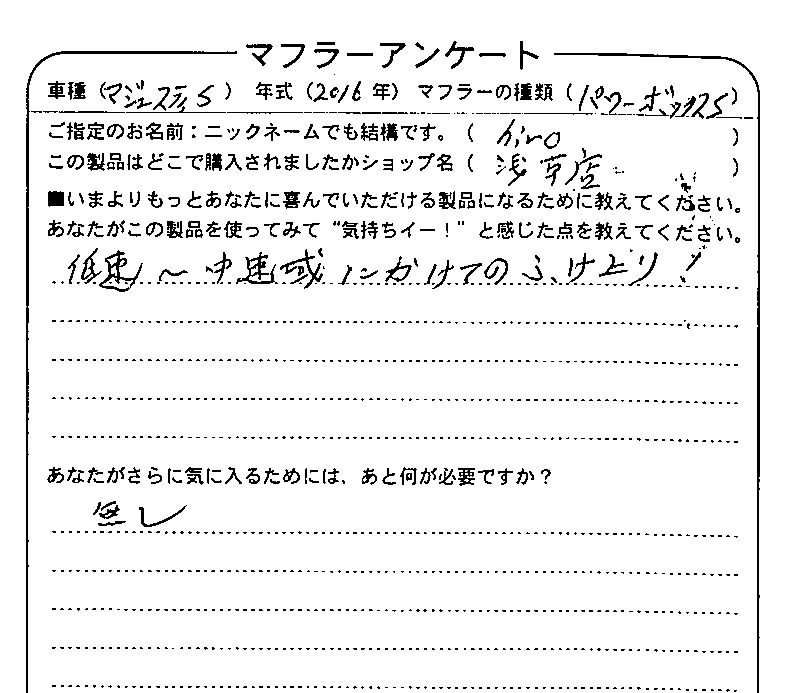 マフラーアンケート
車種（マジェスティS）　年式（2016年）マフラーの種類（パワーボックスS）
ご指定のお名前：ニックネームでも結構です。（ hiro ）
この製品はどこで購入されましたかショップ名（ 浅草店 ）
■いまよりもっとあなたに喜んでいただける製品になるために教えてください。
あなたがこの製品を使ってみて“気持ちイー！”と感じた点を教えてください。
低速〜中速域にかけてのふけ上り！
あなたがさらに気に入るためには、あと何が必要ですか？
無し